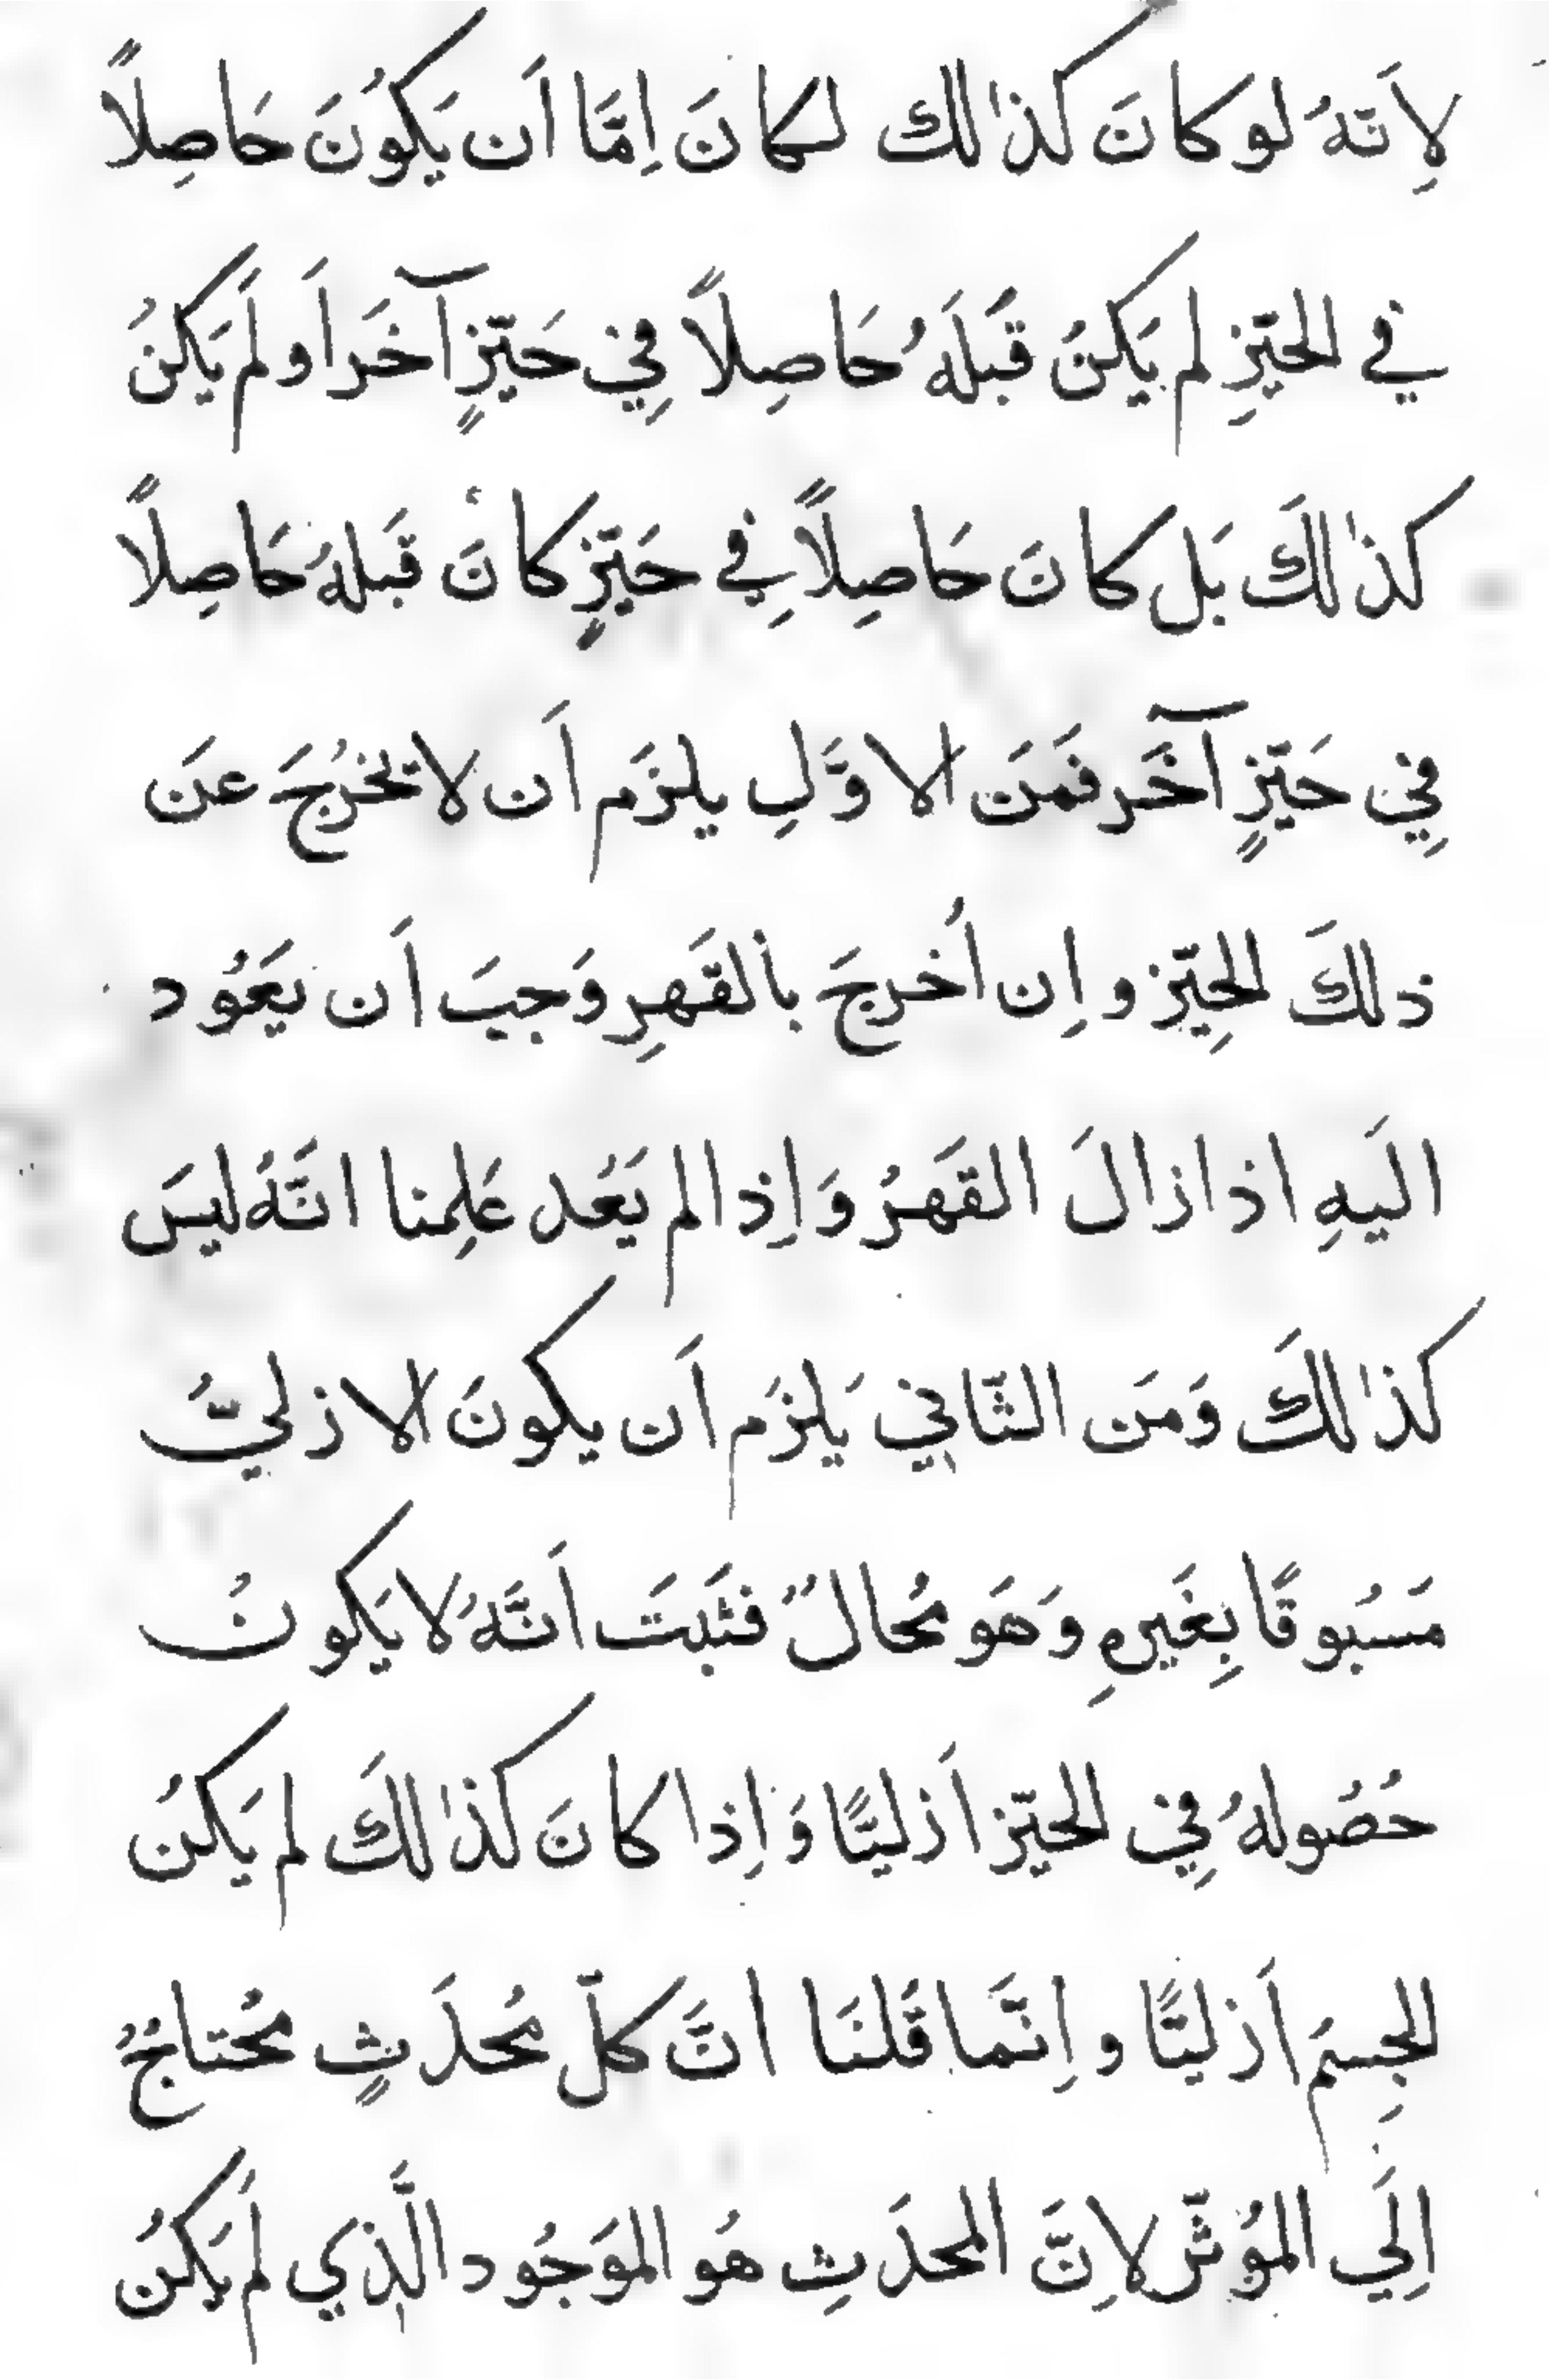 لِاَنّهُ لو كانَ كذٰلك لكانَ اِمَّا اَن يَكوُنَ حَاصِلاً
في الحَيّزِ لم يَكنُ قَبلَهُ حَاصِلاً فِي حَيّزٍ آخَر اَو لَم يَكنُ
كذٰلكَ بَل كانَ حَاصِلاً فِي حَيّزٍ كانَ قَبلهُ حَاصِلاً
فِي حَيّزٍ آخَر فمَنَ الاوَّلِ يلزَم اَن لا يخرُجَ عنَ
ذلكَ الحِيّز و اِن اُخرجَ بالقَهرِ وَجبَ اَن يَعوُد
اليَهِ اذا زالَ القهَرُ وَاِذا لم يَعُد عَلِمنا انَّهُ ليسَ
كذٰلكَ وَمنَ الثّاني يَلزَم اَن يكونَ الازليُّ
مَسبُوقًا بِغَيرهِ وَهَو مُحالٌ فثَبَتَ اَنَّهُ لا يَكونُ
حُصُولهُ فِي الحيّز اَزليًّا وَاِذا كانَ كذٰلكَ لم يَكنُ
الجِسمَ اَزليًّا و اِنّمَا قَلنَا انَّ كلّ مُحدَثٍ مُحتاجٌ
اِلَي المؤُثّر لاِنَّ المحدَثِ هُو الموَجُود الَّذِي لَم يَكنُ